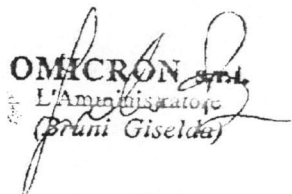 OMICRON s.r.l.
L'Amministratore
(Bruni Giselda)